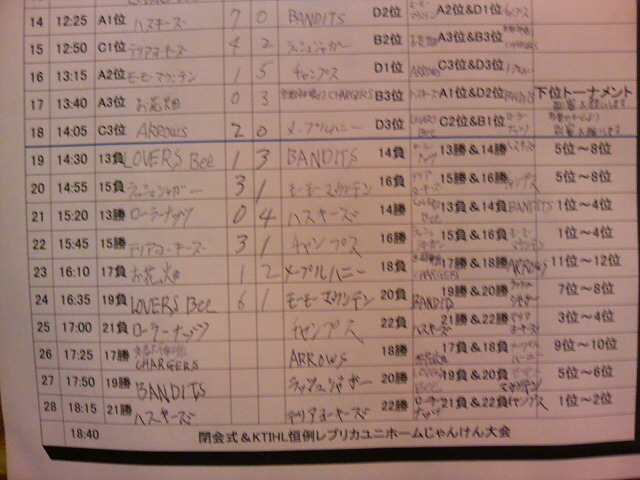 14 12:25 A1位 ハスキーズ 7 0 BANDITS D2位 A2位&D1位
15 12:50 C1位 テリアヨーキーズ 4 2 ラッシュジャガー B2位 A3位&B3位
16 13:15 A2位 モーモーマウンテン 1 5 チャンプス D1位 ARROWS C3位&D3位
17 13:40 A3位 お花畑 0 3 CHARGERS B3位 ハスキーズ A1位&D2位 BANDITS 下位トーナメント
18 14:05 C3位 ARROWS 2 0 メープルハニー D3位 LOVERS Bee C2位&B1位 ローラーナッツ
19 14:30 13負 LOVERS Bee 1 3 BANDITS 14負 13勝&14勝 ハスキーズ 5位~8位
20 14:55 15負 ラッシュジャガー 3 1 モーモーマウンテン 16負 15勝&16勝 チャンプス 5位~8位
21 15:20 13勝 ローラーナッツ 0 4 ハスキーズ 14勝 13負&14負 BANDITS 1位~4位
22 15:45 15勝 テリアヨーキーズ 3 1 チャンプス 16勝 15負&16負 1位~4位
23 16:10 17負 お花畑 1 2 メープルハニー 18負 CHARGERS 17勝&18勝 ARROWS 11位~12位
24 16:35 19負 LOVERS Bee 6 1 モーモーマウンテン 20負 BANDITS 19勝&20勝 7位~8位
25 17:00 21負 ローラーナッツ チャンプス 22負 ハスキーズ 21勝&22勝 3位~4位
26 17:25 17勝 CHARGERS ARROWS 18勝 17負&18負 9位~10位
27 17:50 19勝 BANDITS ラッシュジャガー 20勝 LOVERS Bee 19負&20負 5位~6位
28 18:15 21勝 ハスキーズ テリアヨーキーズ 22勝 ローラーナッツ 21負&22負 チャンプス 1位~2位
18:40 閉会式&KTIHL恒例レプリカユニホームじゃんけん大会